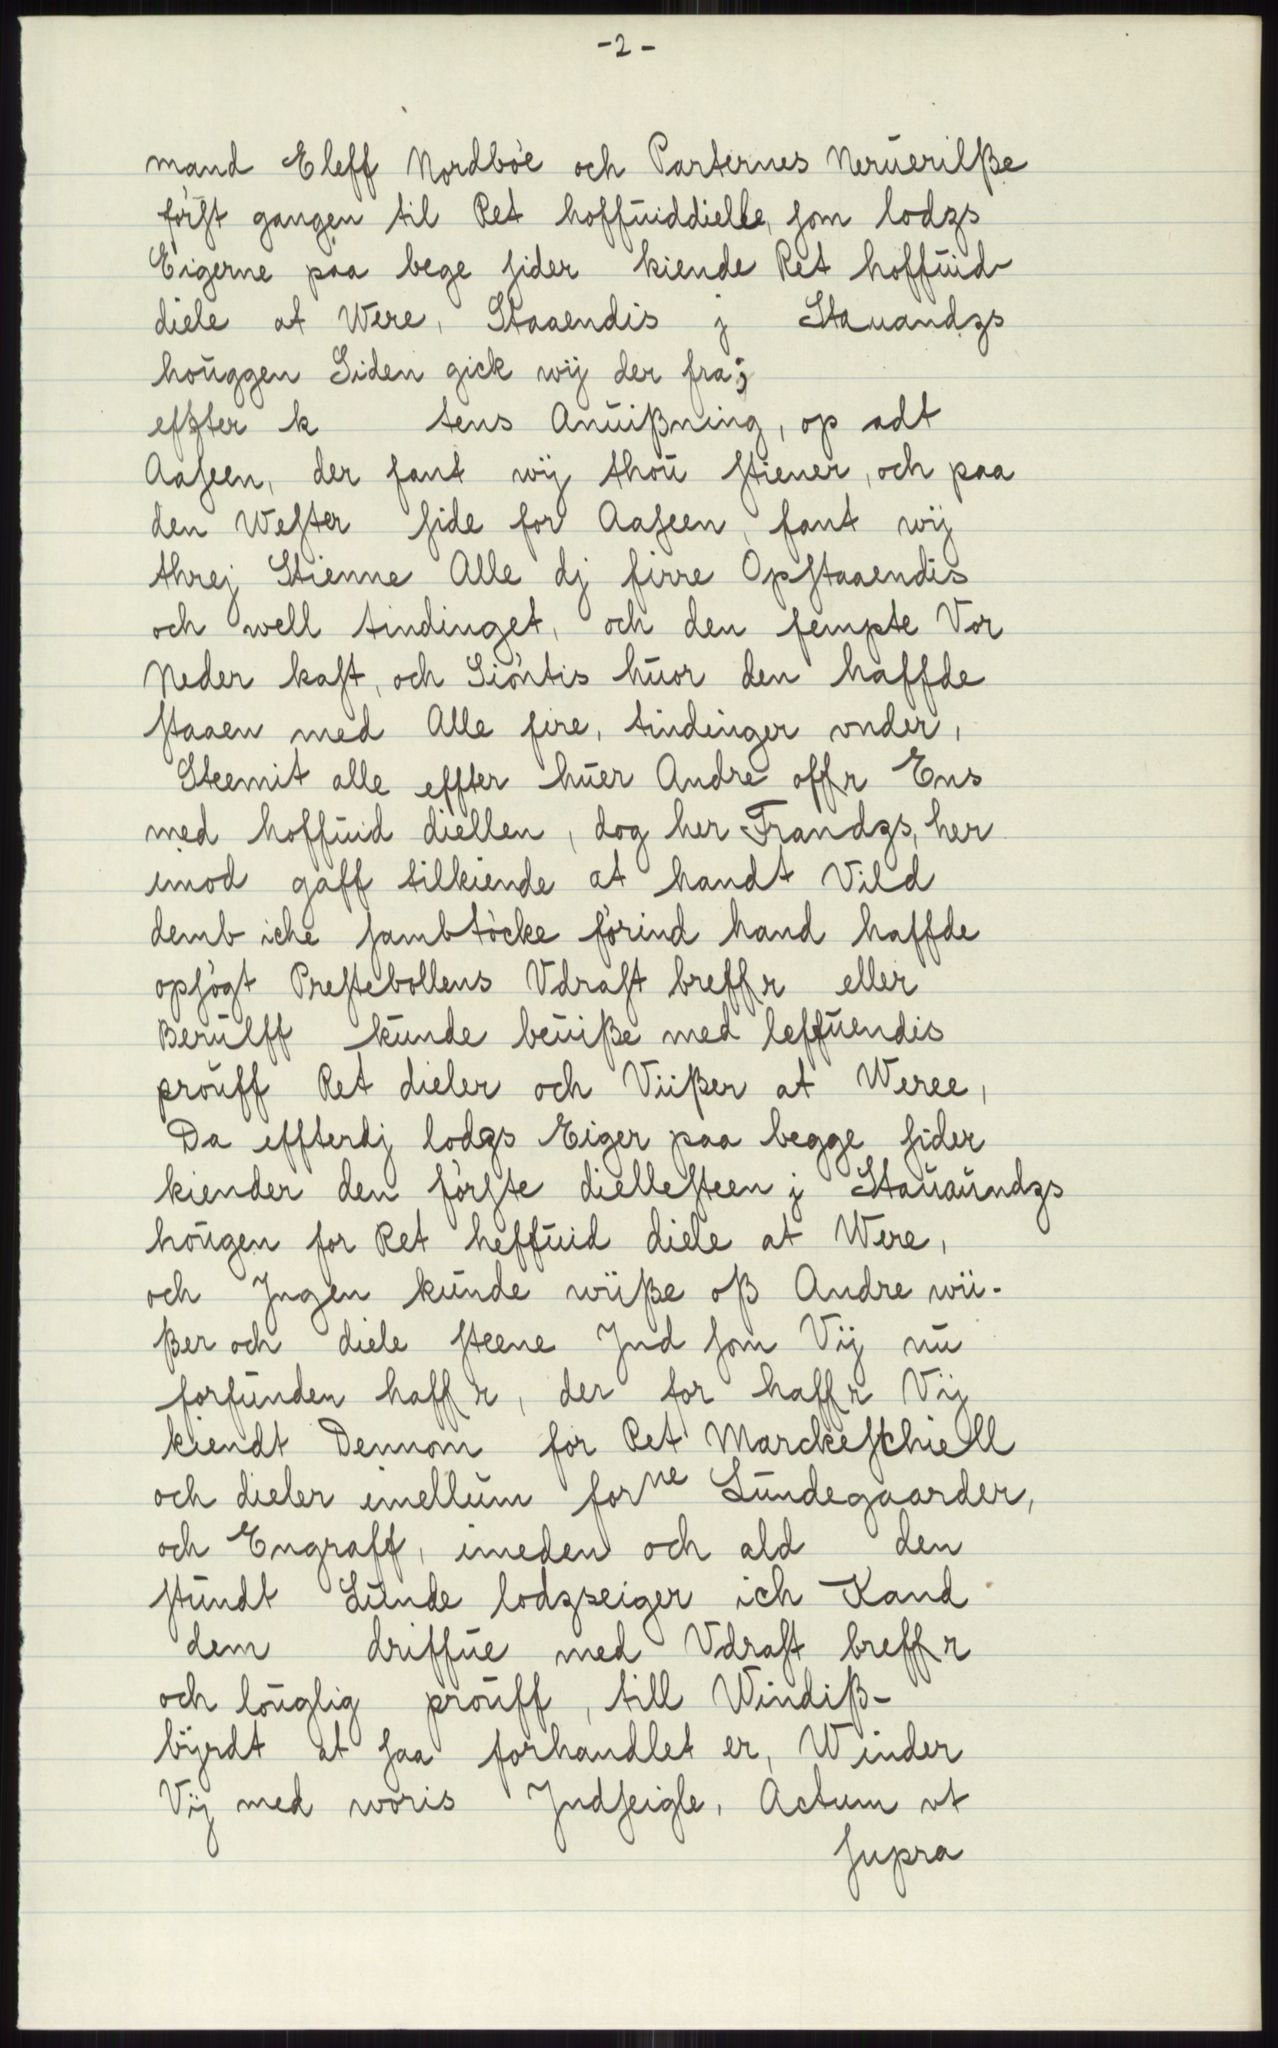 -2-
mand Eleff Nordbøe och Parternes Neruerilße
først gangen til Ret hoffuiddielle, som lodzs
Eigerne paa bege sider kiende Ret hoffuid-
diele at Were, Staaendis j Stauandzs
houggen Siden gick wij der fra;
effter k tens Anuißning, op adt
Aaseen, der fant wij thou stiener, och paa
den Wester side for Aaseen, fant wij
threj Stienne Alle dj firre Opstaaendis
och well tindinget, och den fempte Vor
Neder kast, och Siøntis huor den haffde
staaen med Alle fire, tindinger vnder,
Steemit alle effter huer Andre offr Ens
med hoffuid diellen, dog her Frandzs, her
imod gaff tilkiende at handt Vild
demb iche sambtøcke førind hand haffde
opsøgt Prestebollens Vdrast breffr eller
Berulff kunde beuiße med leffuendis
prouff Ret dieler och Viißer at Weree,
Da effterdj lodzs Eiger paa begge sider
kiender den første diellesteen j Stauaundzs
hougen for Ret heffuid diele at Were,
och Jngen kunde wiiße oß Andre wii-
ßer och diele steene Jnd som Vij nu
forfunden haffr, der for haffr Vij
kiendt Dennom for Ret Marckeschiell
och dieler imellum forne Sundegaarder,
och Engraff, imeden och ald den
stundt Sunde lodzseiger ich Kand
dem driffue med Vdrast breffr
och louglig prouff, till Windiß-
bijrdt at saa forhandlet er, Winder
Vij med woris Jndseigle, Actum vt
supra